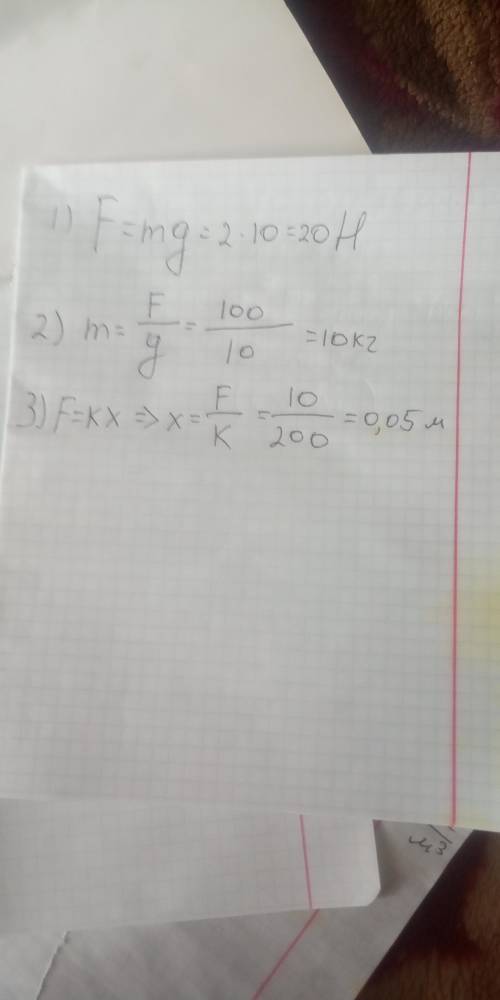 1) F=mg=2·10=20Н
2) m=F/g=100/10=10кг
3) F=кх => х=F/к=10/200=0,05м
м3